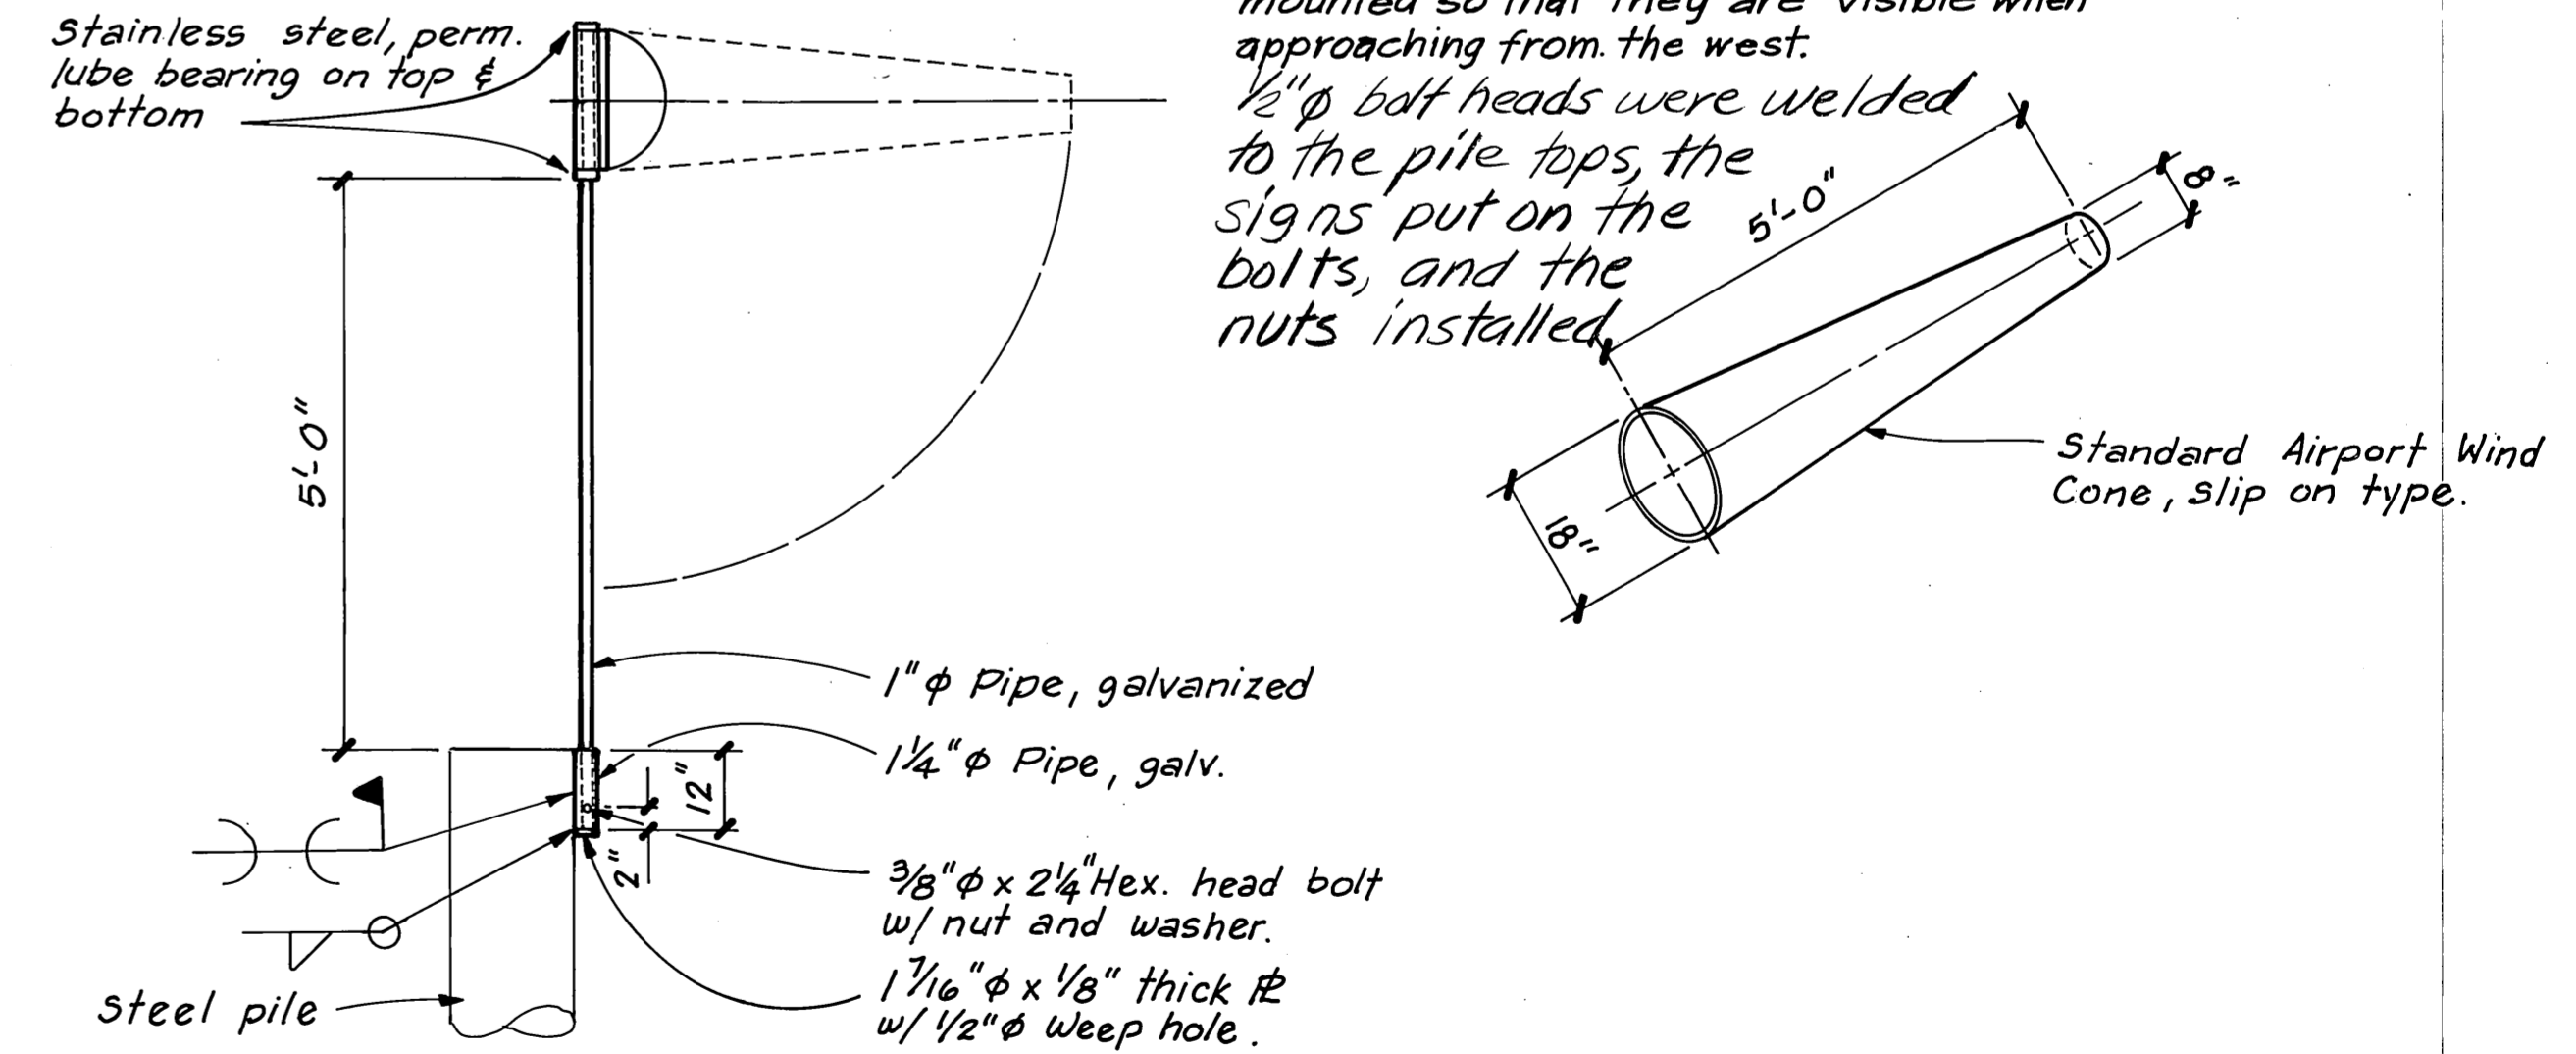 Stainless steel, perm.
lube bearing on top &
bottom
mounted so that they are visible when
approaching from. the west.
1/2"φ bolt heads were welded
to the pile tops, the
signs put on the
bolts, and the
nuts installed.
5'-0"
8"
18"
Standard Airport Wind
Cone, slip on type.
5'-0"
1"φ Pipe, galvanized
1 1/4"φ Pipe, galv.
12"
2"
3/8"φ x 2 1/4" Hex. head bolt
w/ nut and washer.
1 7/16"φ x 1/8" thick ℄
w/ 1/2"φ weep hole.
steel pile